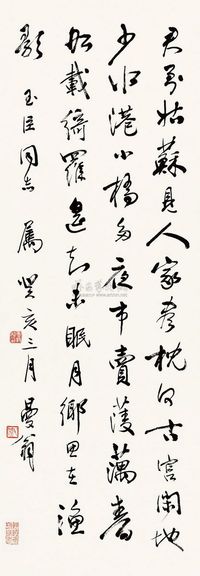 君到姑蘇見人家盡枕河古宮閑地
少水港小橋多夜市賣菱藕春
船載綺羅遥知未眠月鄉思在漁
歌 玉臣同志屬 癸亥三月 曼翁